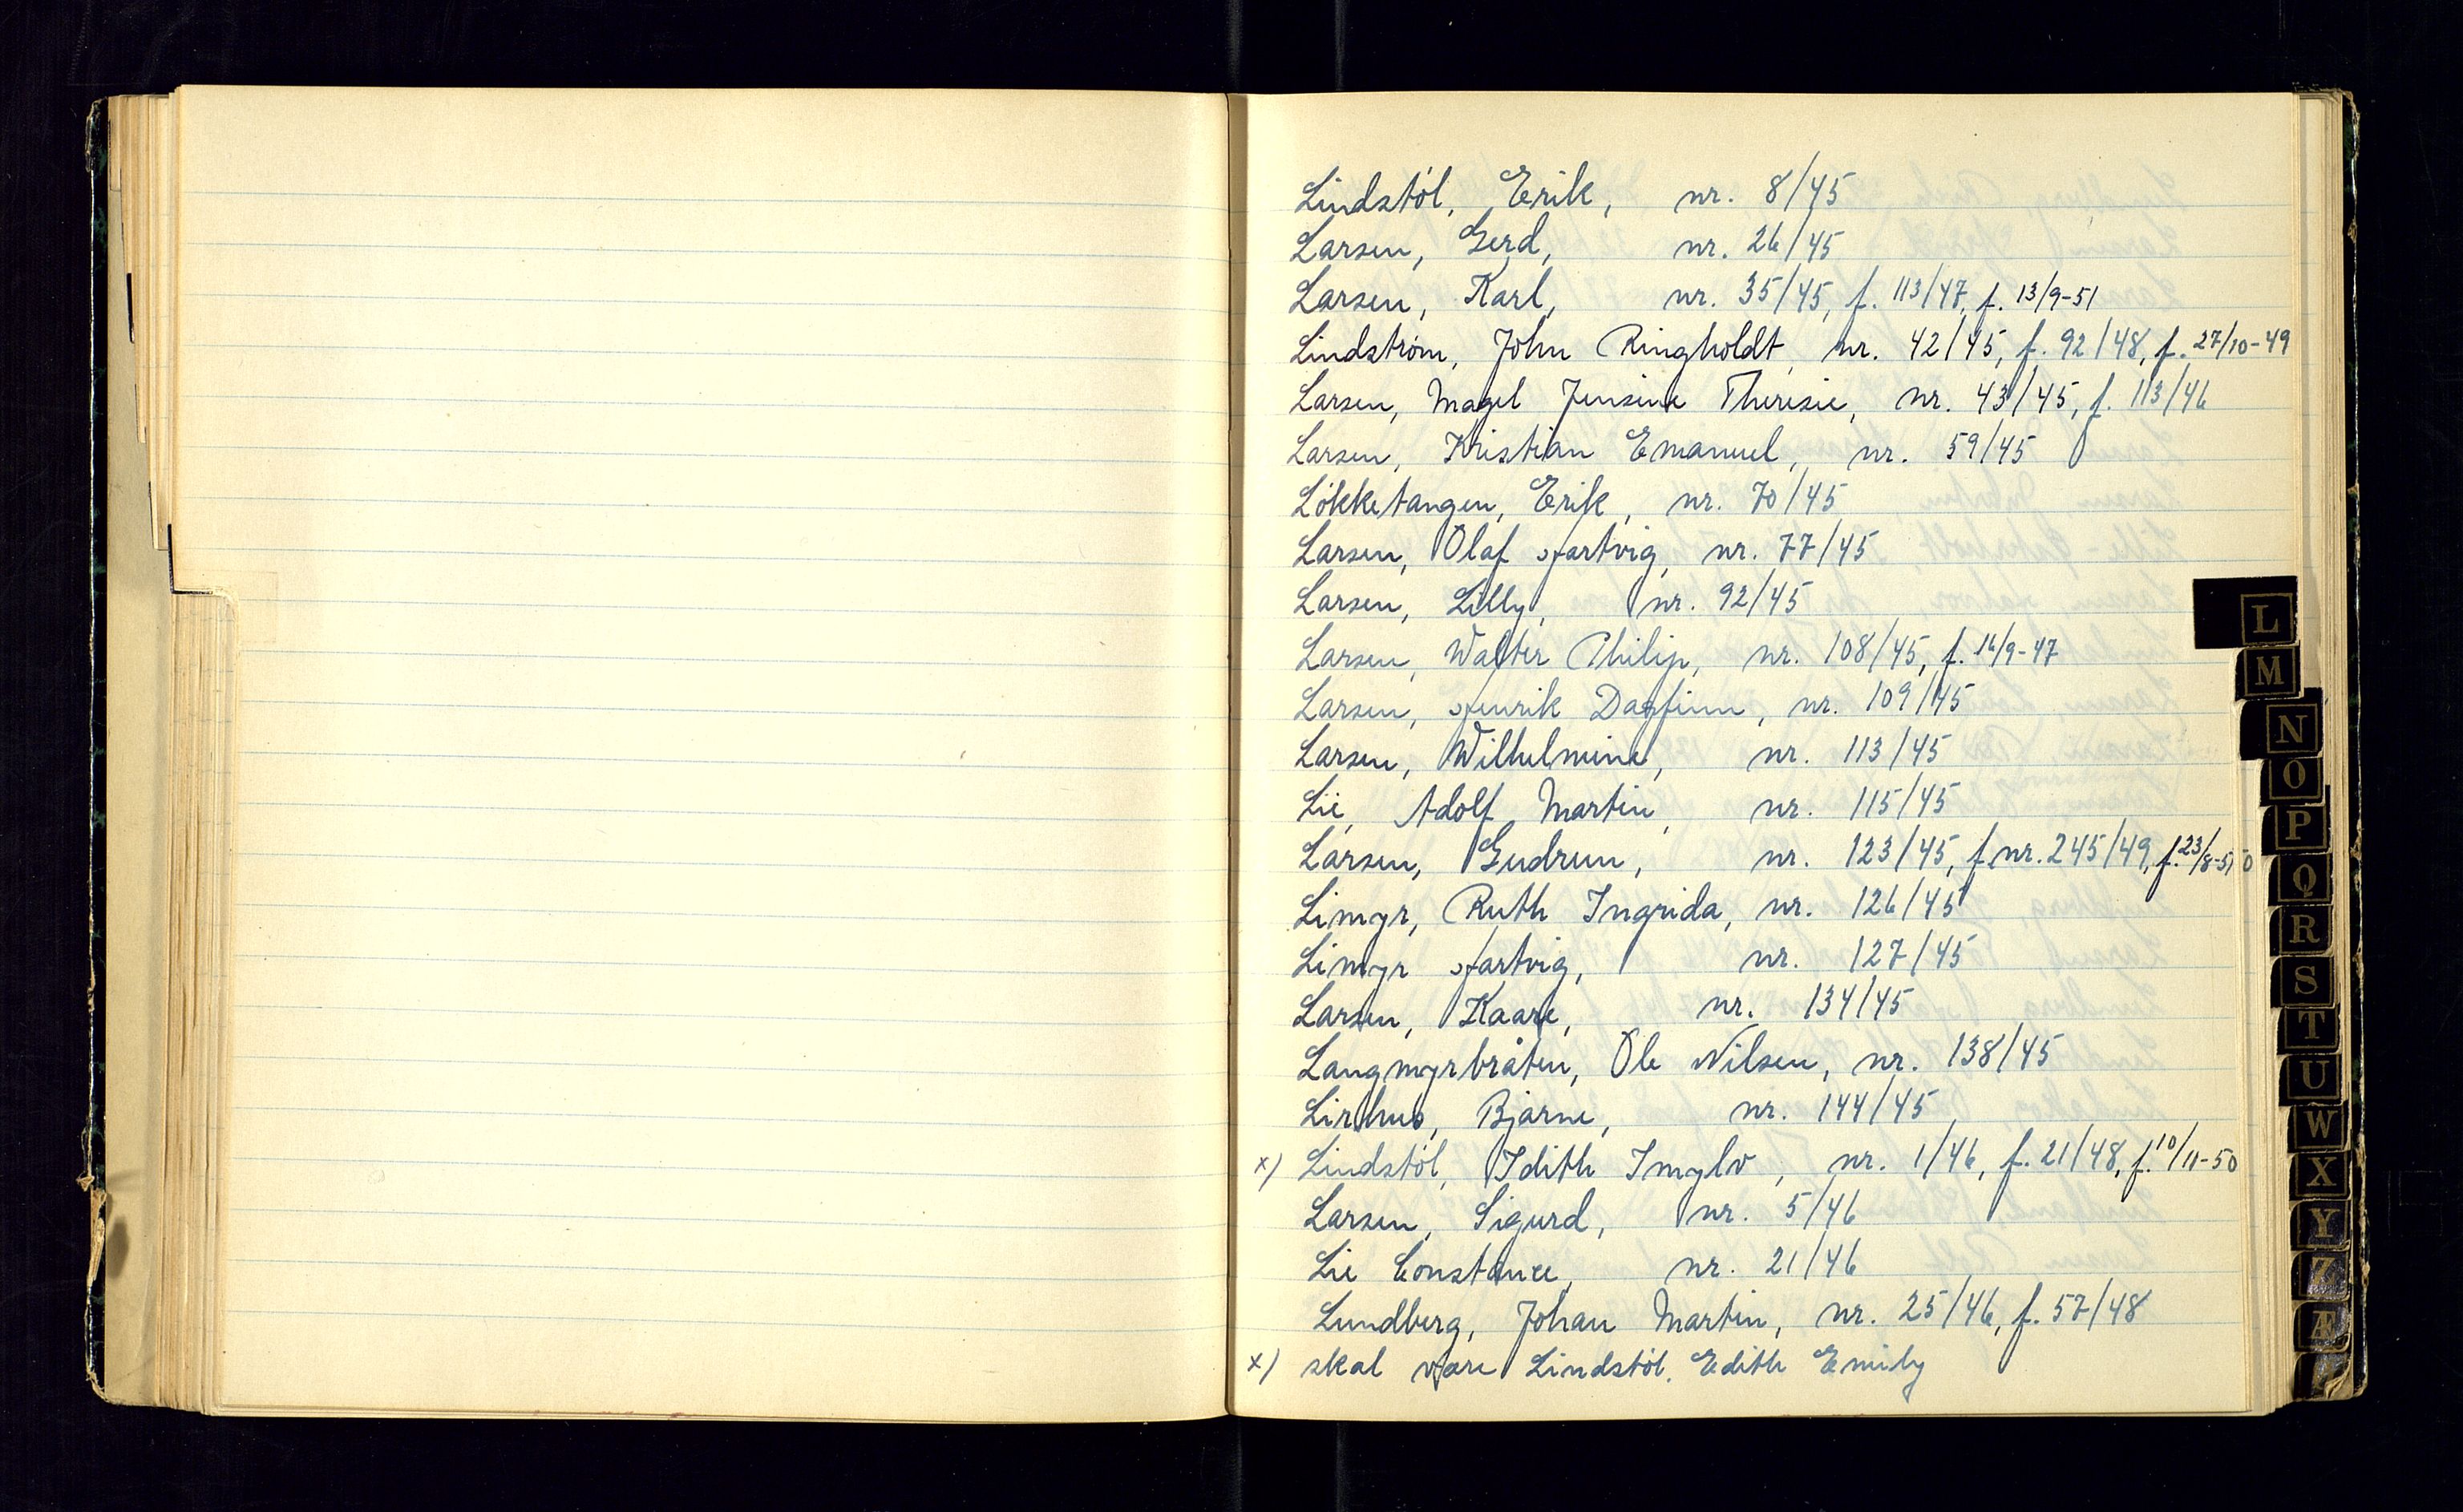 Lindstöl, Erik, nr. 8/45
Larsen, Gerd, nr. 26/45
Larsen, Karl, nr. 35/45, f. 113/47, f. 13/9-51
Lindström, John Ringholdt, nr. 42/45, f. 92/48, f. 27/10-49
Larsen, Magel Jensine Theresie, nr. 43/45, f. 113/46
Larsen, Kristian Emanuel, nr. 59/45
Lökketangen, Erik, nr. 70/45
Larsen, Olaf Hartvig, nr. 77/45
Larsen, Lilly, nr. 92/45
Larsen, Walter Philip, nr. 108/45, f. 16/9-47
Larsen, Henrik Dagfinn, nr. 109/45
Larsen, Wilhelmine, nr. 113/45
Lie, Adolf Martin, nr. 115/45
Larsen, Gudrun, nr. 123/45, f. nr. 245/49, f. 23/8-50
Limyr, Ruth Ingrida, nr. 126/45
Limyr Hartvig, nr. 127/45
Larsen, Kaare, nr. 134/45
Langmyrbråten, Ole Nilsen, nr. 138/45
Lirhus, Bjarne, nr. 144/45
x) Lindstöl, Idith Imylv, nr. 1/46, f. 21/48, f. 10/11-50
Larsen, Sigurd, nr. 5/46
Lie Constance, nr. 21/46
Lundberg, Johan Martin, nr. 25/46, f. 57/48
x) skal være Lindstöl, Edith Emily
L
M
N
O
P
Q
R
S
T
U
W
X
Y
Z
Æ